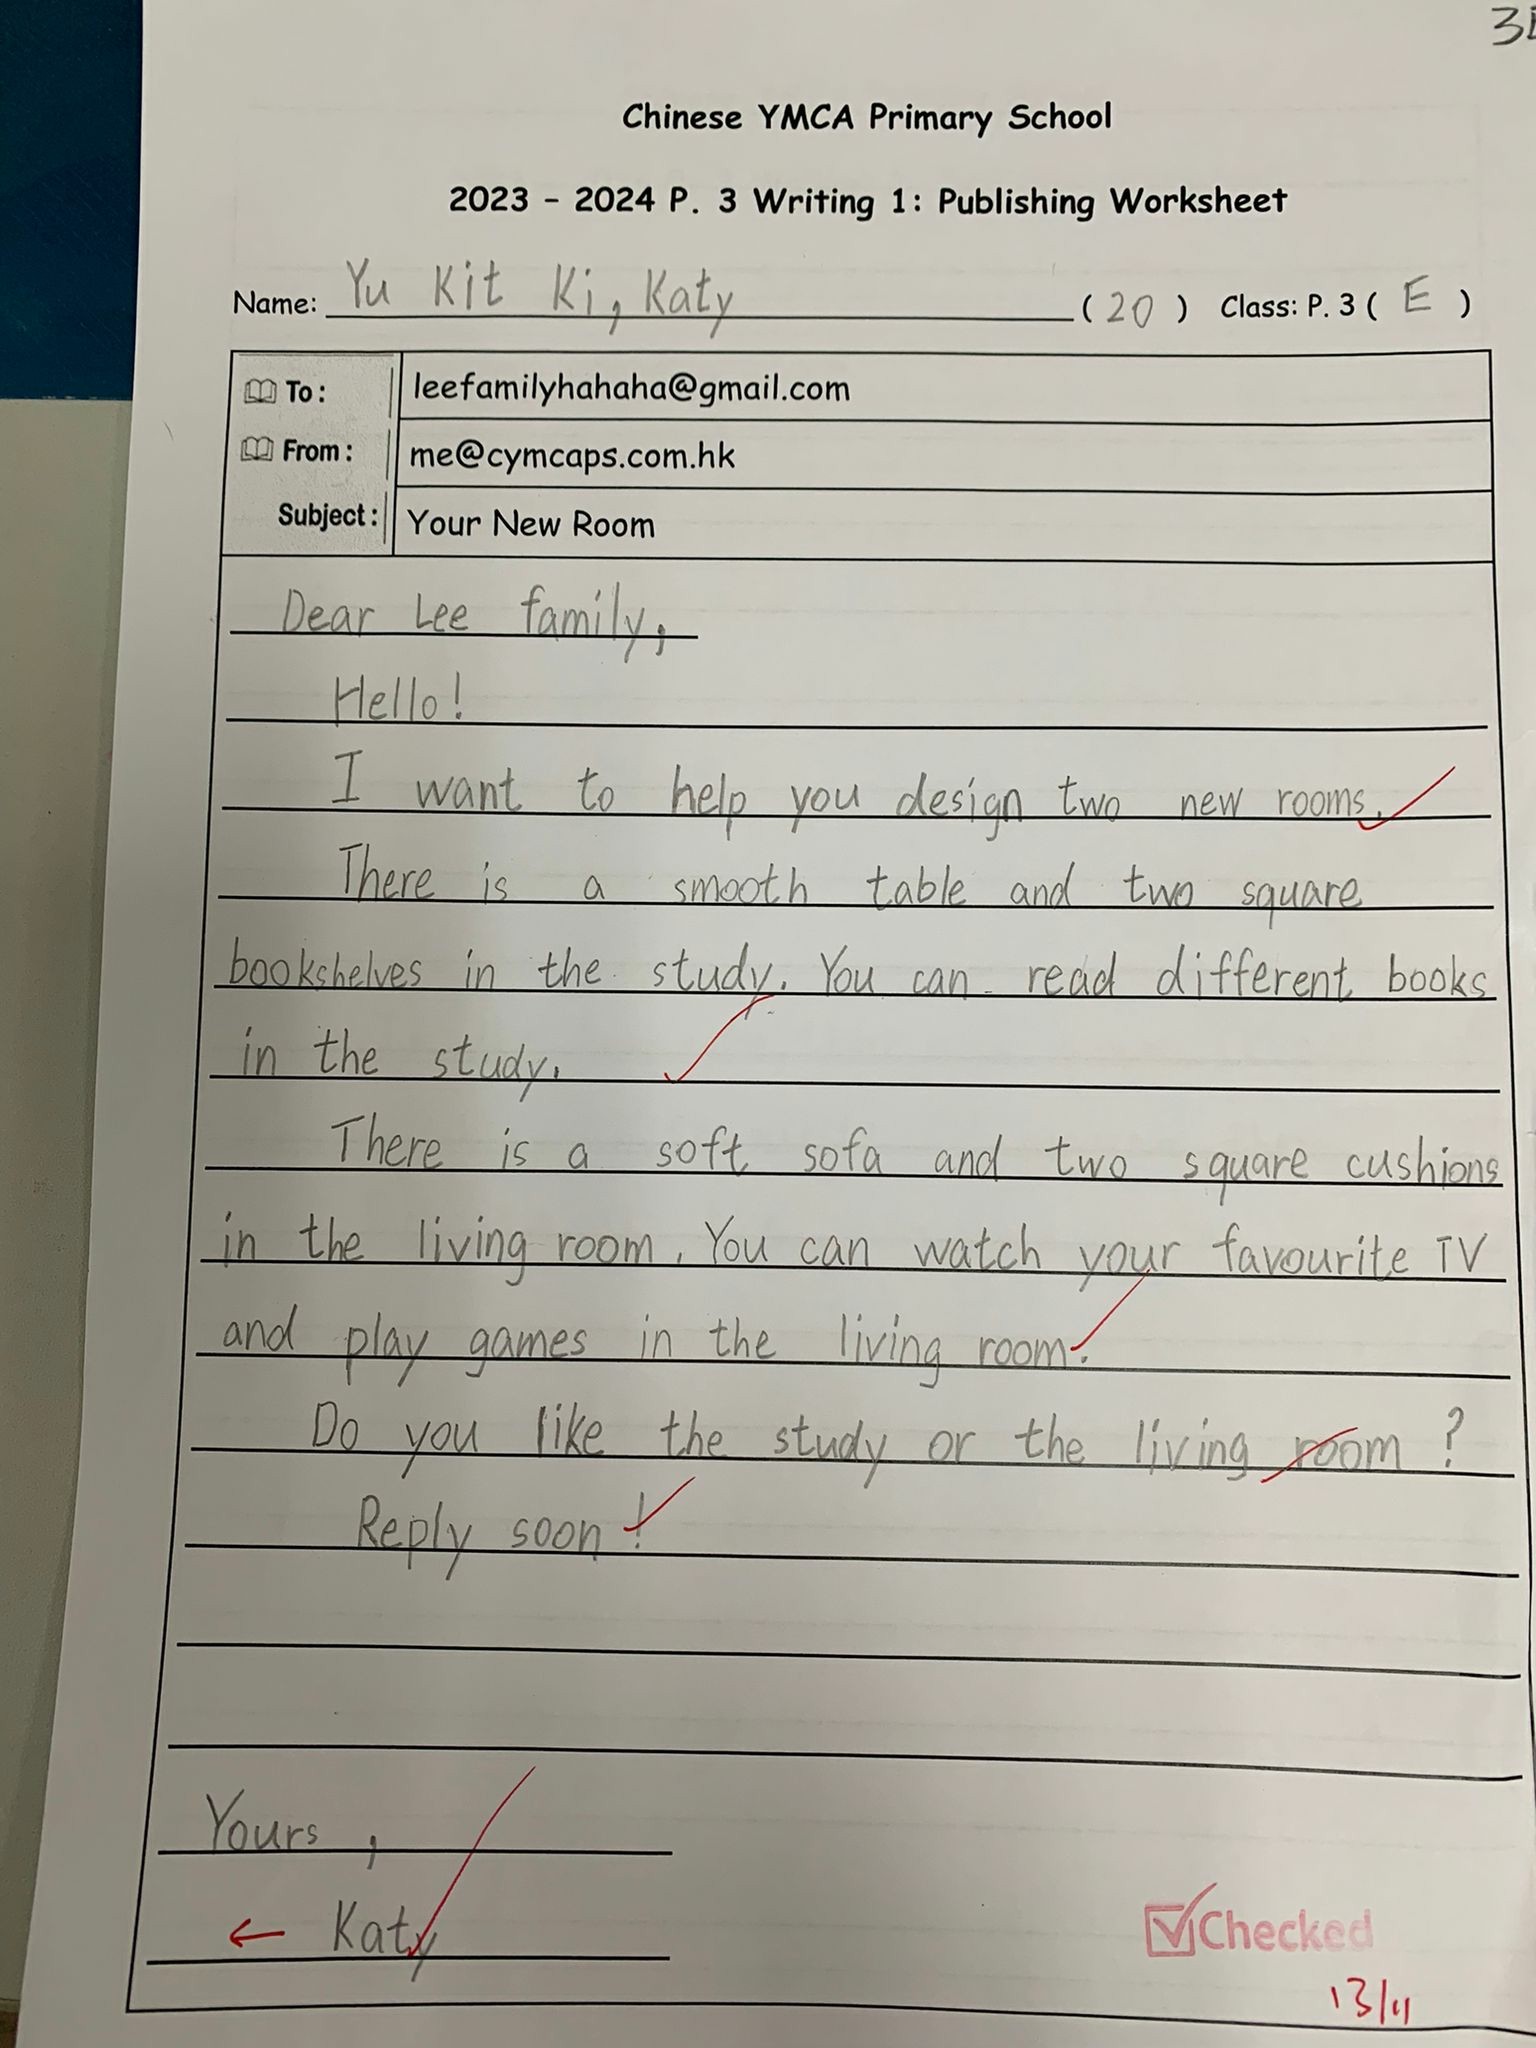 Chinese YMCA Primary School
2023 - 2024 P. 3 Writing 1: Publishing Worksheet
Name: Yu Kit Ki, Katy (20) Class: P. 3 ( E )
To: leefamilyhahaha@gmail.com
From: me@cymcaps.com.hk
Subject: Your New Room
Dear Lee family,
Hello!
I want to help you design two new rooms.
There is a smooth table and two square
bookshelves in the study. You can read different books
in the study.
There is a soft sofa and two square cushions
in the living room. You can watch your favourite TV
and play games in the living room.
Do you like the study or the living room ?
Reply soon !
Yours ,
← Katy
Checked
13/11